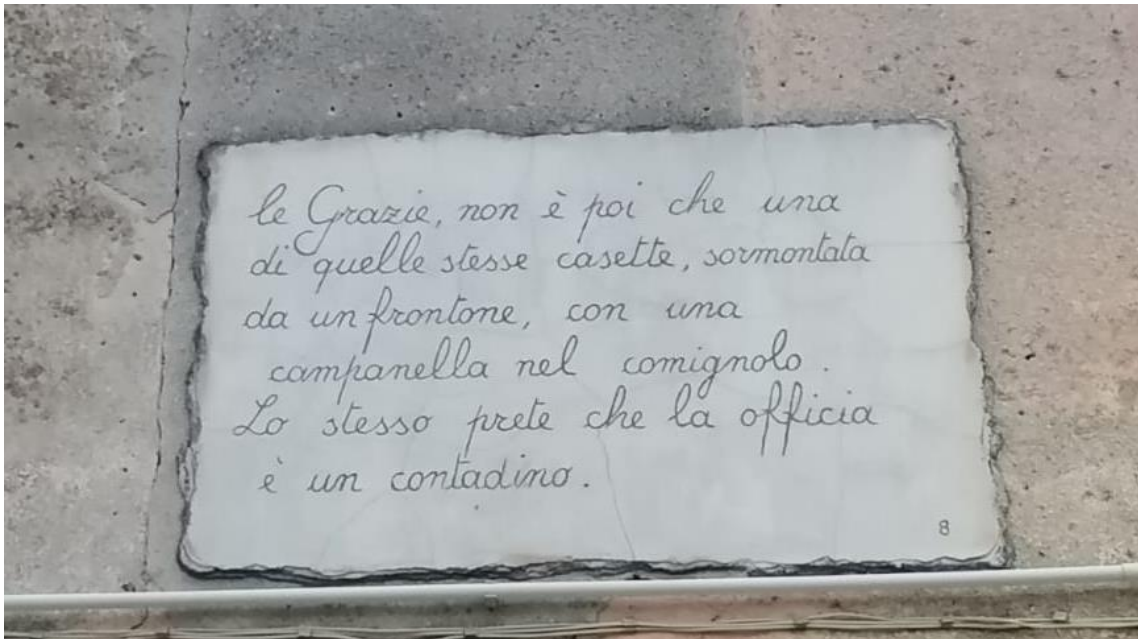 le Grazie, non è poi che una
di quelle stesse casette, sormontata
da un frontone, con una
campanella nel comignolo.
Lo stesso prete che la officia
è un contadino.
8